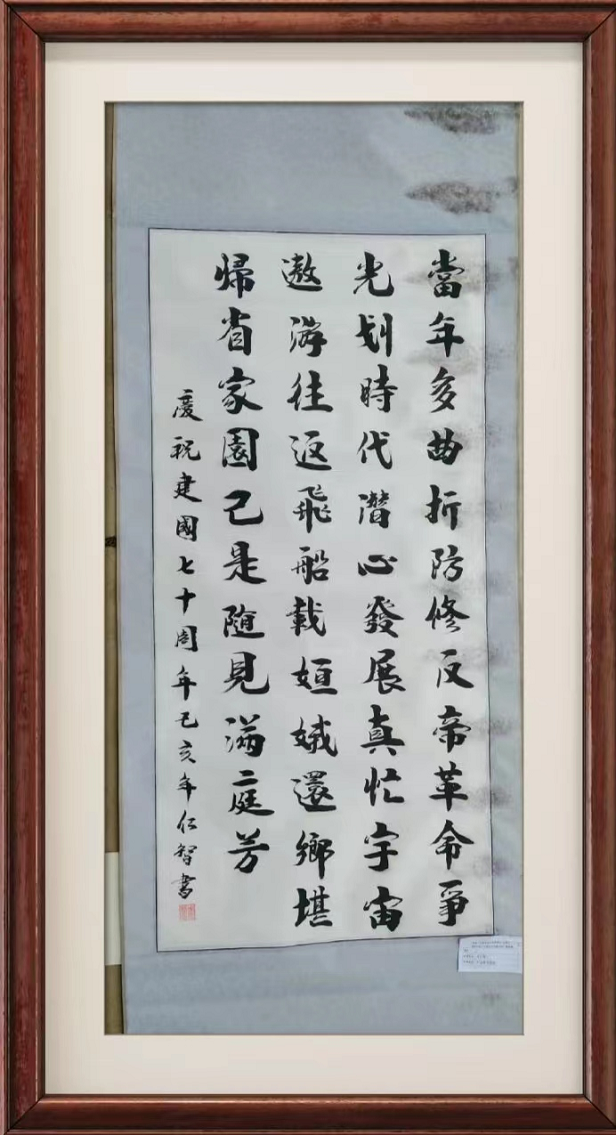 當年多曲折防修反帝革命爭
光划時代潛心發展真忙宇宙
遨游往返飛船載姮娥還鄉堪
帰省家園己是随見滿庭芳
慶祝建國七十周年己亥年仁智書